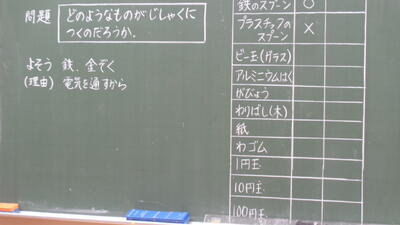 問題
どのようなものがじしゃくに
つくのだろうか.
よそう 鉄、金ぞく
(理由) 電気を通すから
鉄のスプーン ○
プラスチックの
スプーン ×
ビー玉(ガラス)
アルミニウムはく
がびょう
わりばし(木)
紙
わゴム
1円玉
10円玉
100円玉